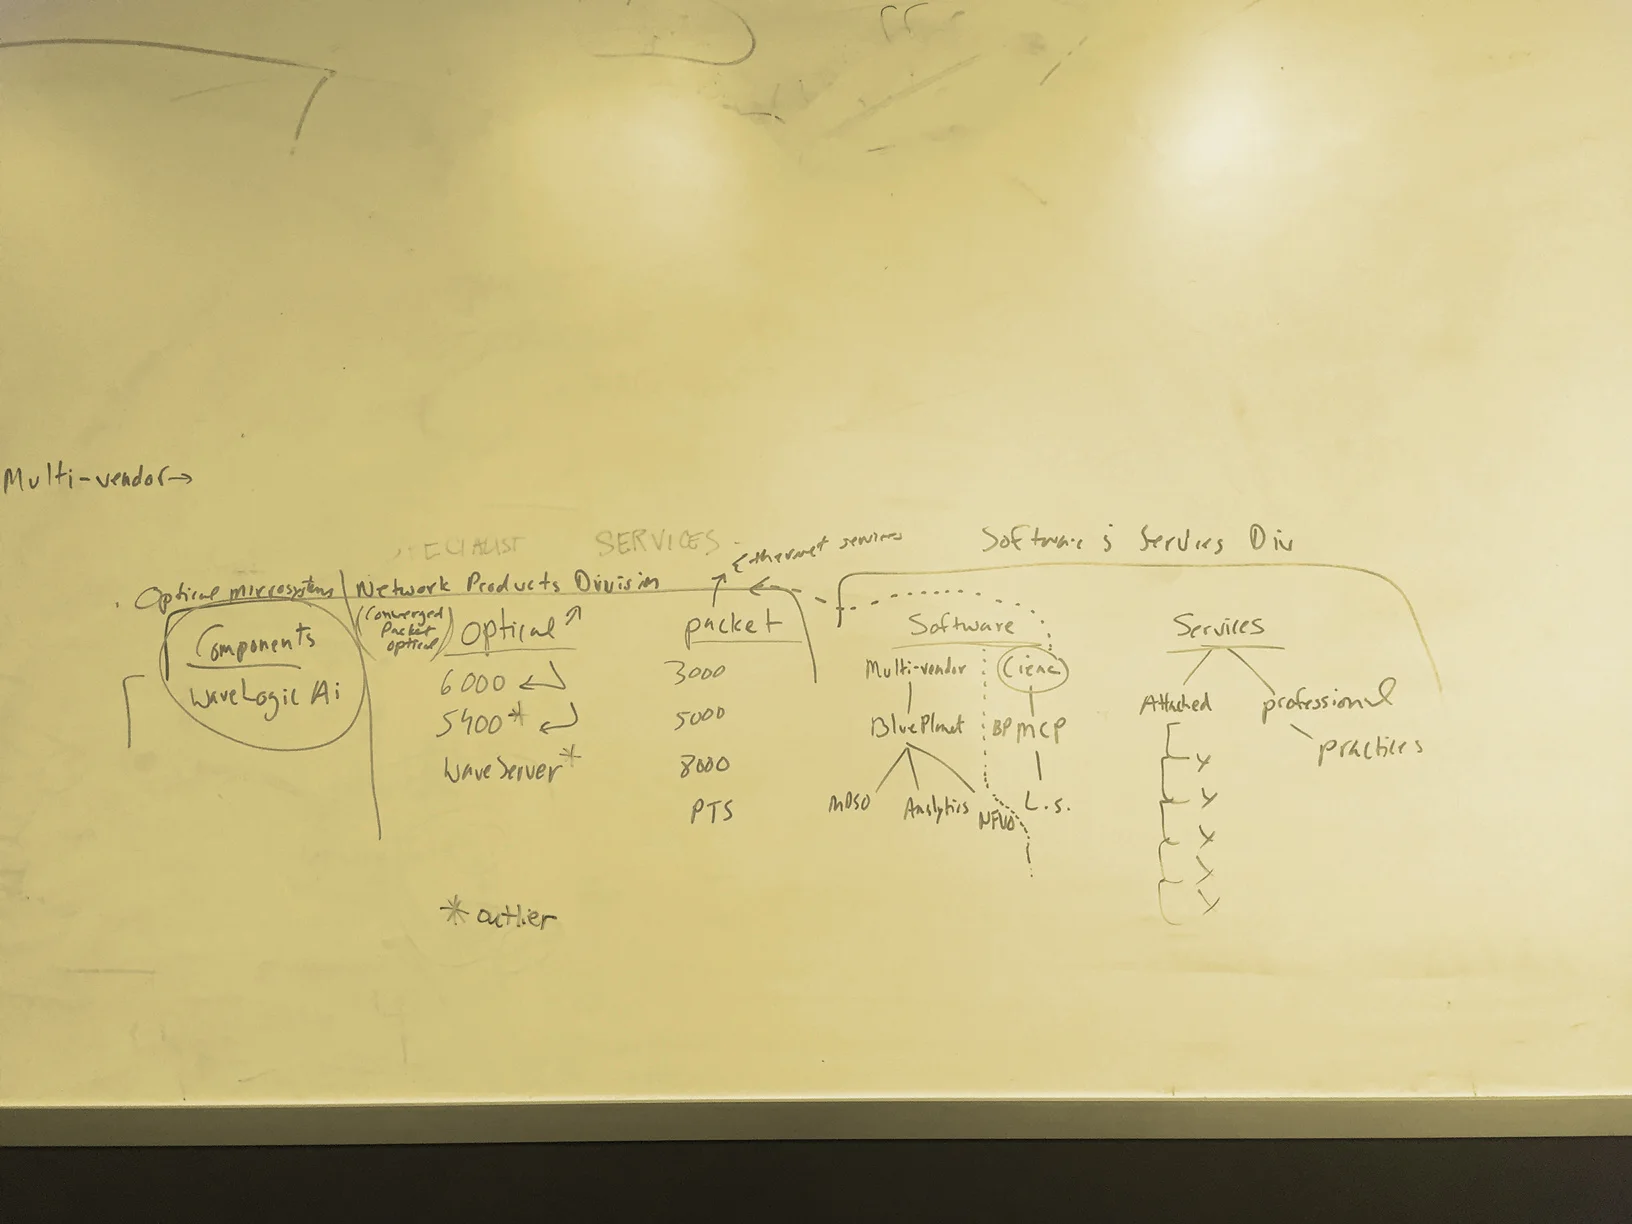 Multi-vendor→
SERVICES
Ethernet services
Software & Services Div
Optical microsystems
Network Products Division
Components
WaveLogic Ai
(Converged
Packet
optical)
Optical
6000
5400*
WaveServer*
* outlier
packet
3000
5000
8000
PTS
Software
Multi-vendor
BluePlanet
MDSO
Analytics
NFVO
Ciena
BPMCP
L.S.
Services
Attached
professional
practices